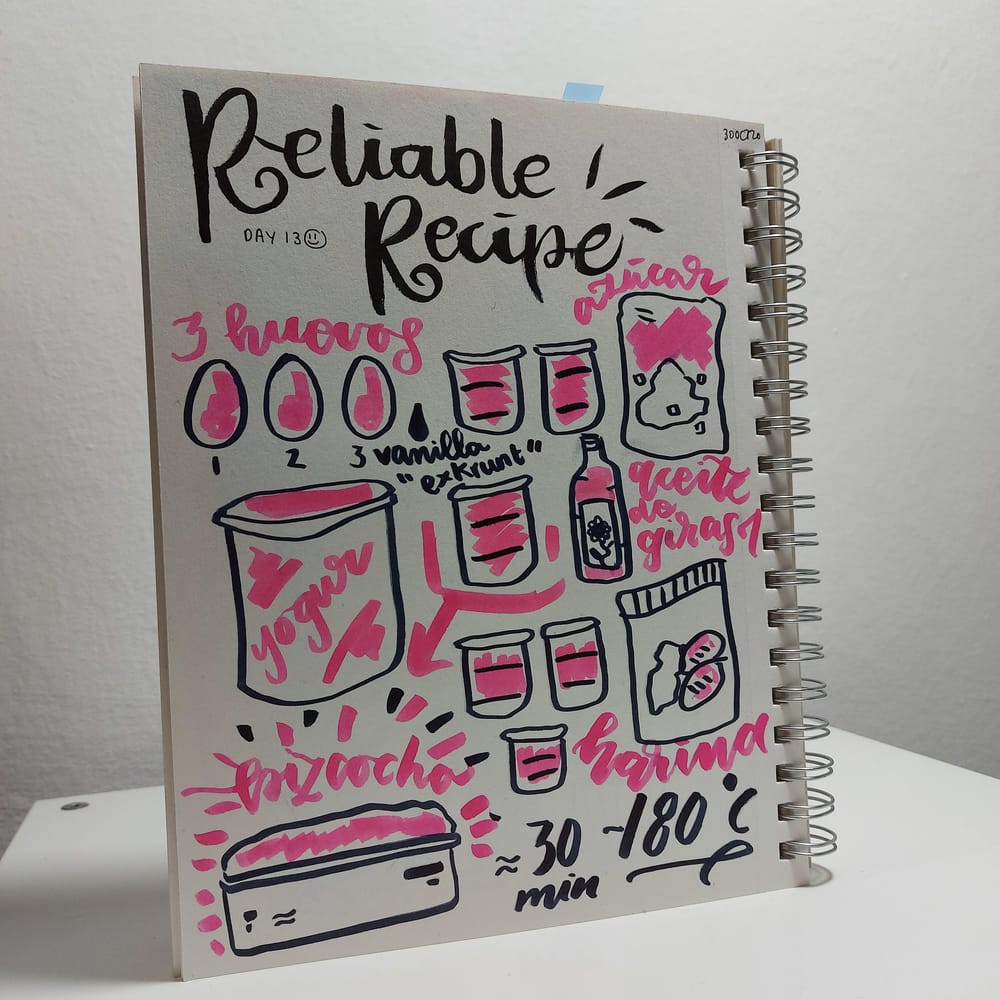 Reliable
Recipe
300CT20
DAY 13
azúcar
3 huovos
1 2 3
vanilla
"exkrunt"
aceite
de
girasol
yogur
harina
bizcocho
≈ 30
min
~180°C